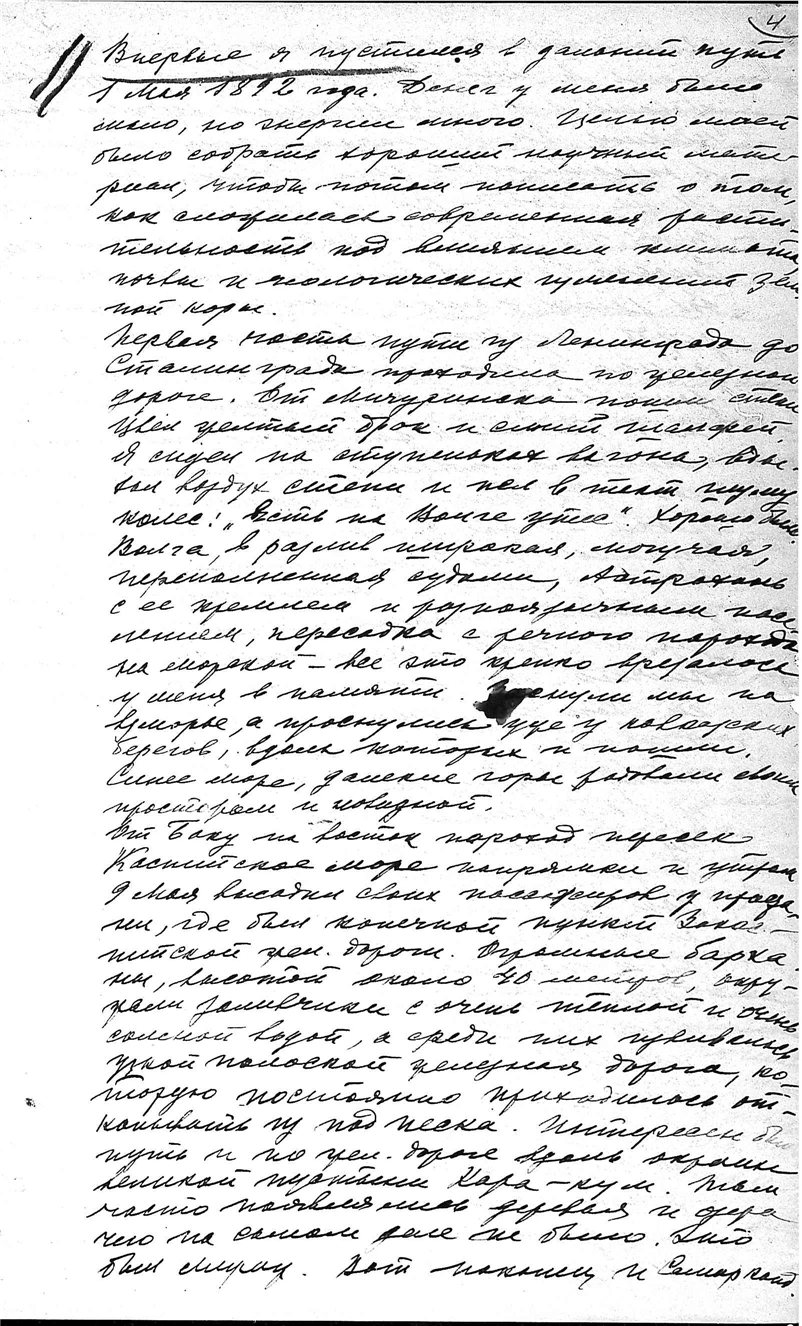 4
Впервые я пустился в дальний путь
1 мая 1892 года. Денег у меня было
мало, но энергии много. Целью моей
было собрать хороший научный мате-
риал, чтобы потом написать о том,
как сложилась современная расти-
тельность под влиянием климата,
почвы и геологических изменений зем-
ной коры.
Первая часть пути из Ленинграда до
Сталинграда проходила по железной
дороге. От Мичуринска пошли степи
Цвел желтый дрок и синий шалфей.
Я сидел на ступеньках вагона, вды-
хал воздух степи и пел в такт шуму
колес: "Есть на Волге утес". Хорошо было.
Волга, в разлив широкая, могучая,
переполненная судами, Астрахань
с ее кремлем и разноязычным насе-
лением, пересадка с речного парохода
на морской – все это крепко врезалось
у меня в памяти. Заснули мы на
взморье, а проснулись уже у кавказских
берегов, вдоль которых и пошли.
Синее море, далекие горы радовали своим
простором и новизной.
От Баку на восток пароход пересек
Каспийское море напрямки и утром
9 мая высадил своих пассажиров у приста-
ни, где был конечной пункт Закас-
пийской жел. дороги. Огромные барха-
ны, высотой около 40 метров, окру-
жали заливчики с очень теплой и очень
соленой водой, а среди них извивалась
узкой полоской железная дорога, ко-
торую постоянно приходилось от-
капывать из под песка. Интересен был
путь и по жел. дороге вдоль окраины
великой пустыни Кара-кум. Там
часто появлялись деревья и озера
чего на самом деле не было. Это
был мираж. Вот наконец и Самарканд.